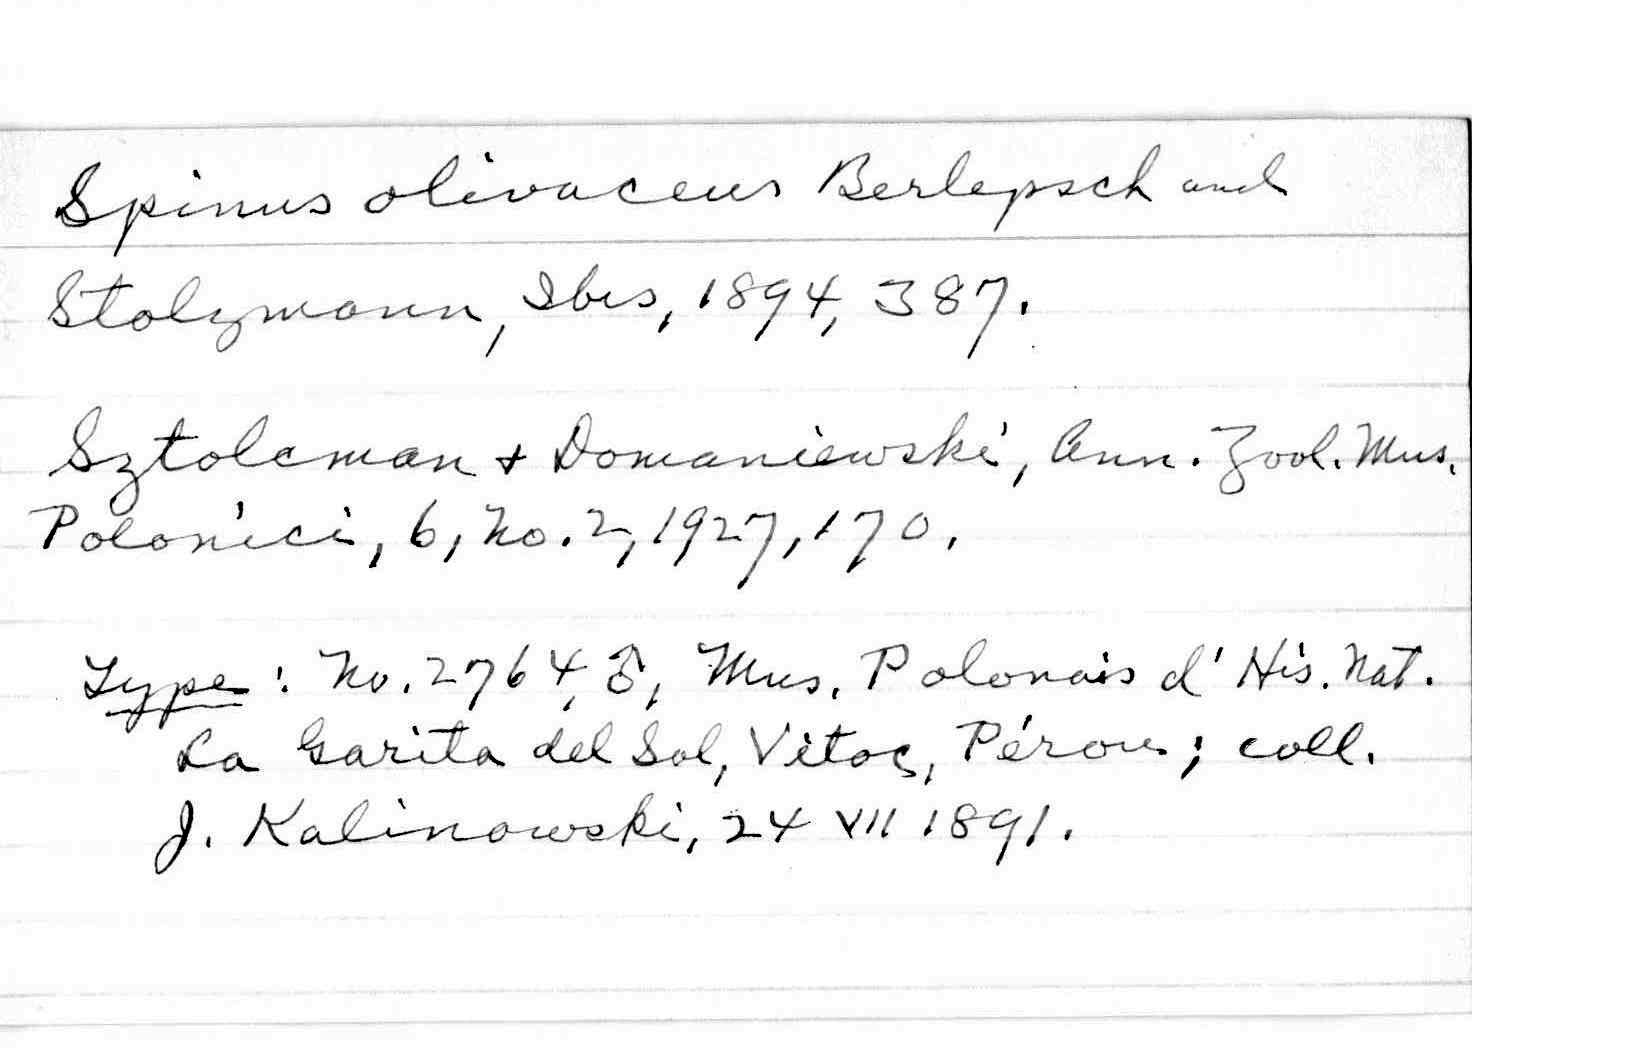 Spinus olivaceus Berlepsch and
Stolzmann, Ibis, 1894, 387.
Sztolcman & Domaniewski, Ann. Zool. Mus.
Polonici, 6, No. 2, 1927, 170.
Type: No. 2764, ♂, Mus. Polonais d'His. Nat.
La Garita del Sol, Vitoc, Pérou; coll.
J. Kalinowski, 24 VII 1891.